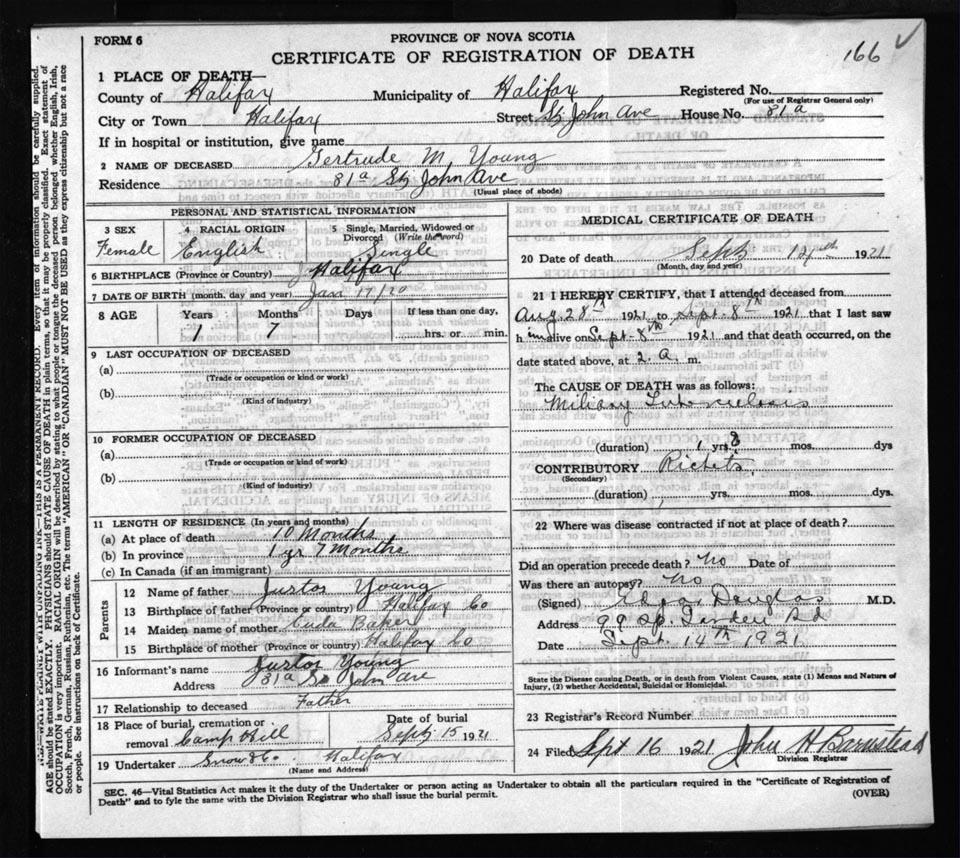 FORM 6
PROVINCE OF NOVA SCOTIA
CERTIFICATE OF REGISTRATION OF DEATH
166
1 PLACE OF DEATH—
County of Halifax Municipality of Halifax Registered No.
(For use of Registrar General only)
City or Town Halifax Street St John Ave House No. 81a
If in hospital or institution, give name
2 NAME OF DECEASED Gertrude M. Young
Residence 81a St John Ave
(Usual place of abode)
PERSONAL AND STATISTICAL INFORMATION
3 SEX 4 RACIAL ORIGIN 5 Single, Married, Widowed or Divorced (Write the word)
Female English Single
6 BIRTHPLACE (Province or Country) Halifax
7 DATE OF BIRTH (month, day and year) Jan 17/20
8 AGE Years Months Days If less than one day,
1 7 hrs. or min.
9 LAST OCCUPATION OF DECEASED
(a)
(Trade or occupation or kind or work)
(b)
(Kind of industry)
10 FORMER OCCUPATION OF DECEASED
(a)
(Trade or occupation or kind or work)
(b)
(Kind of industry)
11 LENGTH OF RESIDENCE (In years and months)
(a) At place of death 10 Months
(b) In province 1 yr 7 Months
(c) In Canada (if an immigrant)
Parents
12 Name of father Justos Young
13 Birthplace of father (Province or country) Halifax Co
14 Maiden name of mother Baker
15 Birthplace of mother (Province or country) Halifax Co
16 Informant's name Justos Young
Address 81a St John Ave
17 Relationship to deceased Father
18 Place of burial, cremation or removal Camp Hill
Date of burial Sept 15 1921
19 Undertaker Snow & Co. Halifax
(Name and Address)
MEDICAL CERTIFICATE OF DEATH
20 Date of death Sept 1921
(Month, day and year)
21 I HEREBY CERTIFY, that I attended deceased from
Aug 28th 1921 to Sept. 8th 1921 that I last saw
h im alive on Sept. 8th 1921 and that death occurred, on the
date stated above, at 2 a m.
The CAUSE OF DEATH was as follows:
Miliary Tuberculosis
(duration) 1 yrs. mos. dys
CONTRIBUTORY Rickets
(Secondary)
(duration) yrs. mos. dys.
22 Where was disease contracted if not at place of death?
Did an operation precede death? No Date of
Was there an autopsy? No
(Signed) Douglas M.D.
Address 99 Rd
Date Sept. 14th 1921
State the Disease causing Death, or in death from Violent Causes, state (1) Means and Nature of
Injury, (2) whether Accidental, Suicidal or Homicidal.
23 Registrar's Record Number
24 Filed Sept 16 1921 John H Barnstead
Division Registrar
SEC. 46—Vital Statistics Act makes it the duty of the Undertaker or person acting as Undertaker to obtain all the particulars required in the "Certificate of Registration of
Death" and to fyle the same with the Division Registrar who shall issue the burial permit.
(OVER)
N.B.—WRITE PLAINLY WITH UNFADING INK—THIS IS A PERMANENT RECORD. Every item of information should be carefully supplied.
AGE should be stated EXACTLY. PHYSICIANS should STATE CAUSE OF DEATH in plain terms, so that it may be properly classified. Exact statement of
OCCUPATION is very important. RACIAL ORIGIN will be described by stating to what people or tongue the deceased person belonged whether English, Irish,
Scotch, French, German, Russian, Ruthenian, etc. The terms "AMERICAN" OR "CANADIAN" MUST NOT BE USED as they express citizenship but not a race
or people. See instructions on back of Certificate.